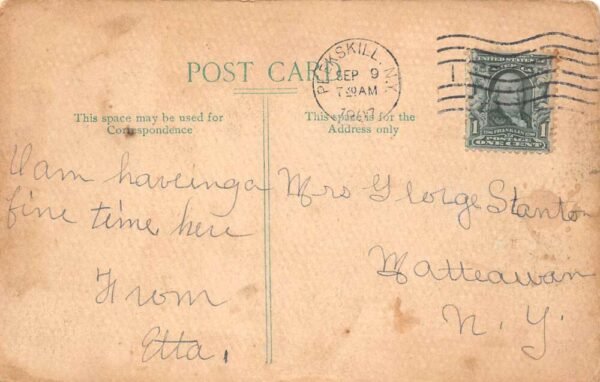 POST CARD
PEEKSKILL, N.Y.
SEP 9
7 30 AM
1907
UNITED STATES
1 FRANKLIN 1
POSTAGE
ONE CENT
This space may be used for
Correspondence
This space is for the
Address only
I am haveing a
fine time here
From
Etta.
Mrs George Stanton
Matteawan
N. Y.